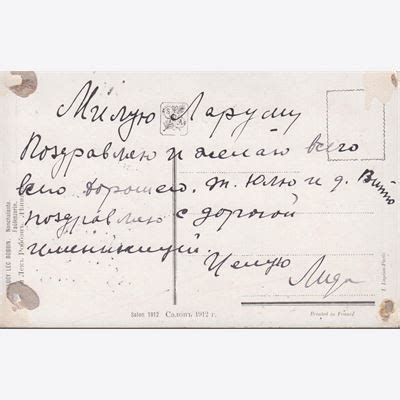 Милую Марусу
Поздравляю и желаю всего
всего хорошего. т. Юлю и д. Витю
поздравляю с дорогой
именинницей.
Целую
Лида
Salon 1912. Салонъ 1912 г.
Printed in Finland